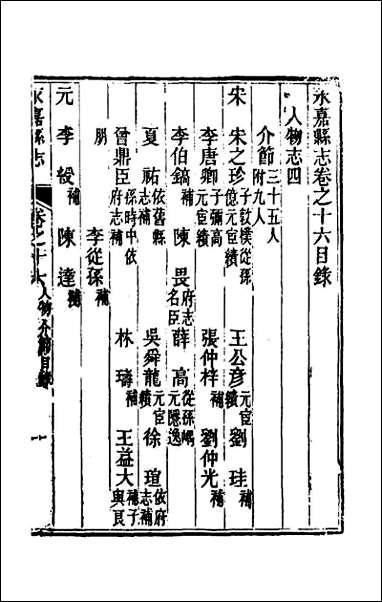 永嘉縣志卷之十六目錄
人物志四
介節三十五人附九人
宋 宋之珍子敦樸從孫億元宦績 王公彥元宦績 劉珪補
李唐卿子彌高元宦績 張仲梓補 劉仲光
李伯鎬補 陳畏府志名臣 薛高從孫嵎元隱逸
夏祐依舊縣志補 吳舜龍元宦績 徐瑄依府志補
曾鼎臣孫時中依府志補 林璹補 王益大補子與艮
朋 李從孫補
元 李綬補 陳達補
永嘉縣志 卷之十六 人物介節目錄 一